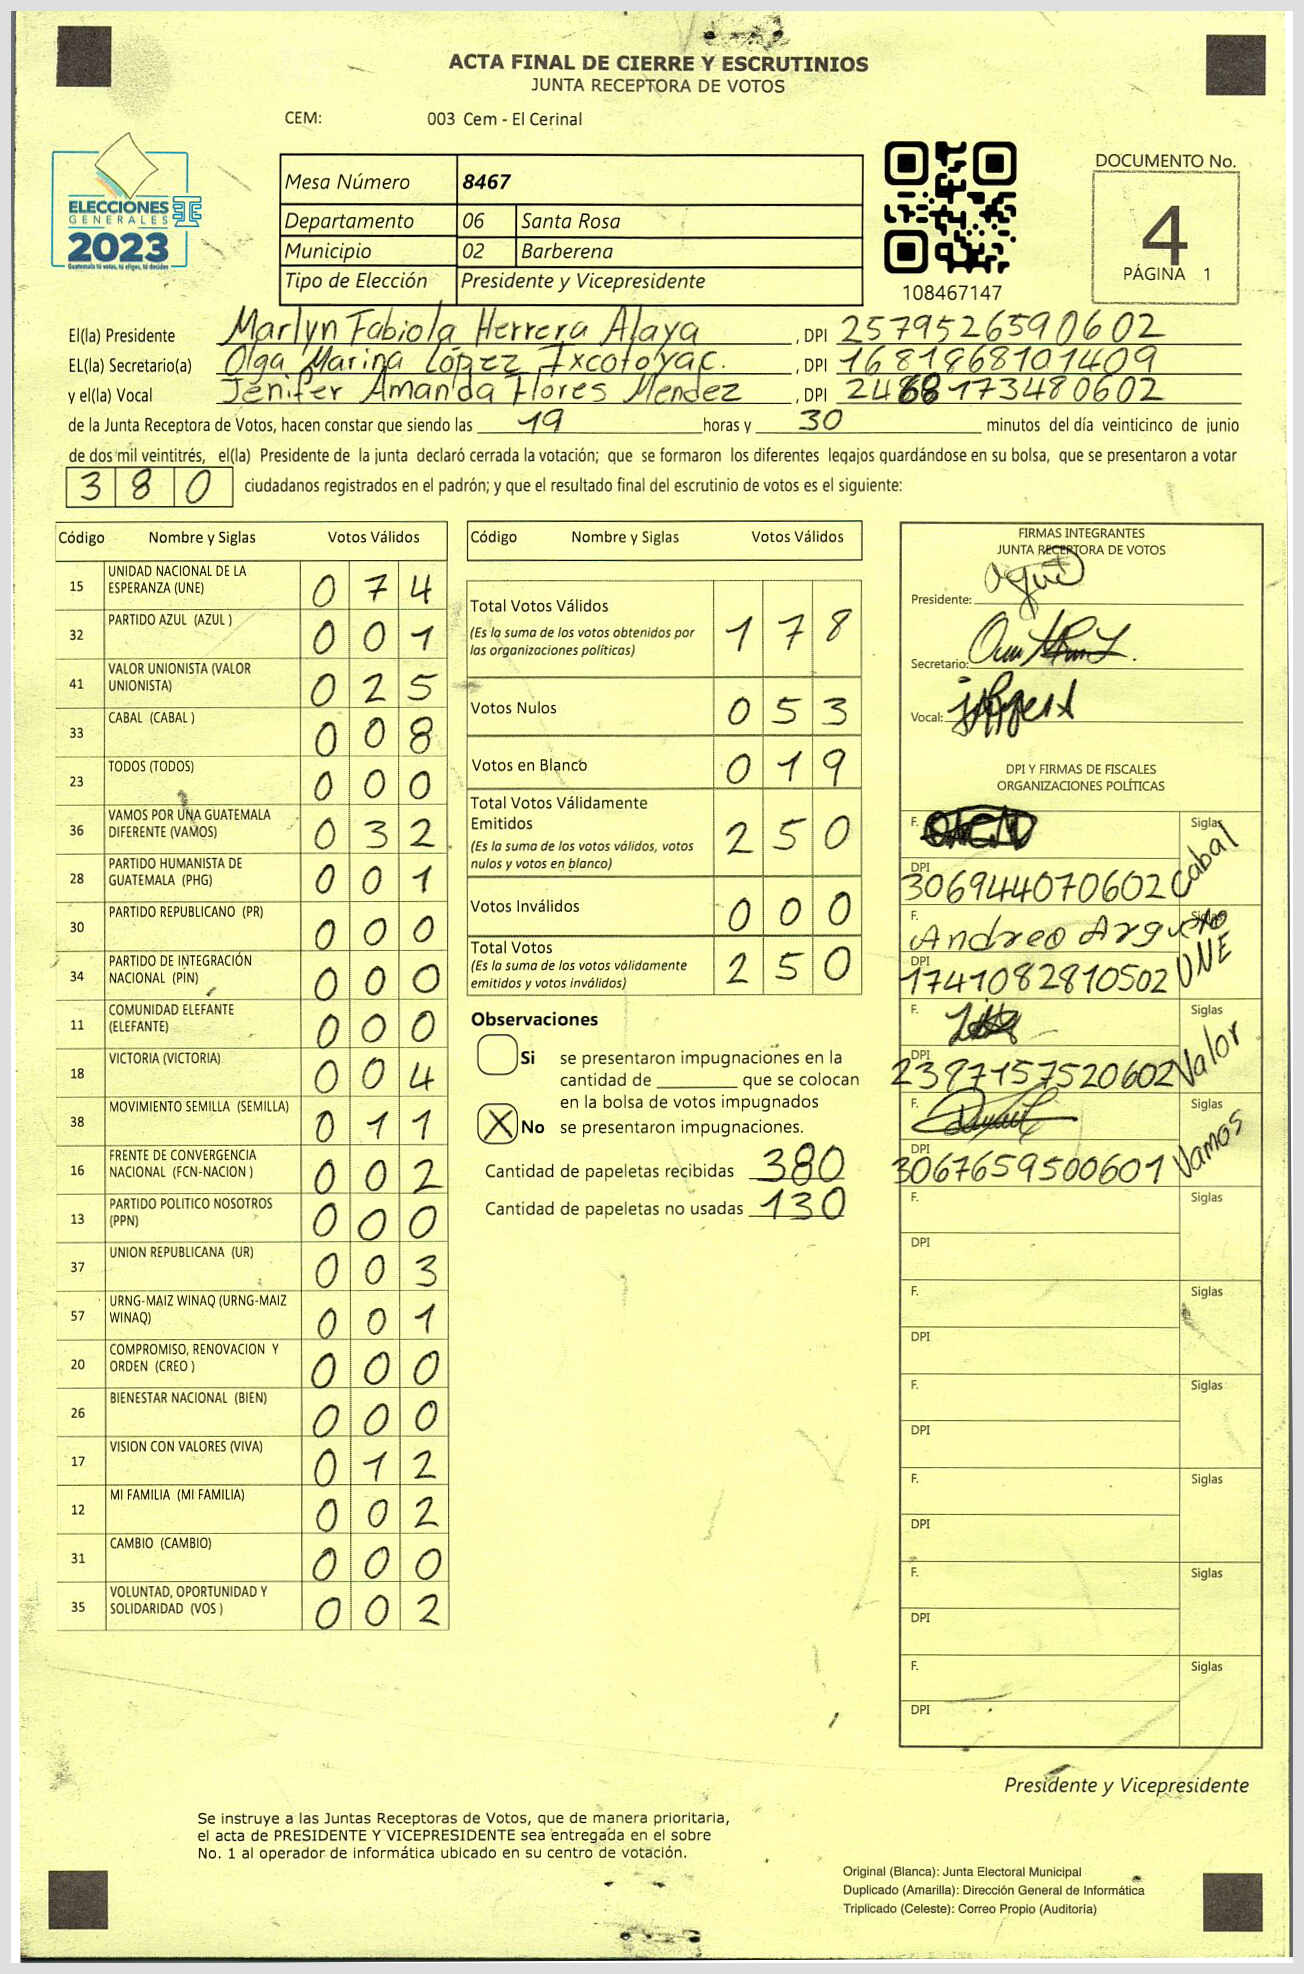 ACTA FINAL DE CIERRE Y ESCRUTINIOS
JUNTA RECEPTORA DE VOTOS
CEM: 003 Cem - El Cerinal
ELECCIONES
GENERALES
2023
Guatemala tú votas, tú eliges, tú decides
Mesa Número 8467
Departamento 06 Santa Rosa
Municipio 02 Barberena
Tipo de Elección Presidente y Vicepresidente
108467147
DOCUMENTO No.
4
PÁGINA 1
El(la) Presidente Marlyn Fabiola Herrera Alaya , DPI 2579526590602
EL(la) Secretario(a) Olga Marina López Ixcotoyac. , DPI 1681968101409
y el(la) Vocal Jénifer Amanda Flores Mendez , DPI 2488173480602
de la Junta Receptora de Votos, hacen constar que siendo las 19 horas y 30 minutos del día veinticinco de junio
de dos mil veintitrés, el(la) Presidente de la junta declaró cerrada la votación; que se formaron los diferentes legajos guardándose en su bolsa, que se presentaron a votar
380 ciudadanos registrados en el padrón; y que el resultado final del escrutinio de votos es el siguiente:
Código Nombre y Siglas Votos Válidos
15 UNIDAD NACIONAL DE LA
ESPERANZA (UNE) 0 7 4
32 PARTIDO AZUL (AZUL ) 0 0 1
41 VALOR UNIONISTA (VALOR
UNIONISTA) 0 2 5
33 CABAL (CABAL ) 0 0 8
23 TODOS (TODOS) 0 0 0
36 VAMOS POR UNA GUATEMALA
DIFERENTE (VAMOS) 0 3 2
28 PARTIDO HUMANISTA DE
GUATEMALA (PHG) 0 0 1
30 PARTIDO REPUBLICANO (PR) 0 0 0
34 PARTIDO DE INTEGRACIÓN
NACIONAL (PIN) 0 0 0
11 COMUNIDAD ELEFANTE
(ELEFANTE) 0 0 0
18 VICTORIA (VICTORIA) 0 0 4
38 MOVIMIENTO SEMILLA (SEMILLA) 0 1 1
16 FRENTE DE CONVERGENCIA
NACIONAL (FCN-NACION ) 0 0 2
13 PARTIDO POLITICO NOSOTROS
(PPN) 0 0 0
37 UNION REPUBLICANA (UR) 0 0 3
57 URNG-MAIZ WINAQ (URNG-MAIZ
WINAQ) 0 0 1
20 COMPROMISO, RENOVACION Y
ORDEN (CREO ) 0 0 0
26 BIENESTAR NACIONAL (BIEN) 0 0 0
17 VISION CON VALORES (VIVA) 0 1 2
12 MI FAMILIA (MI FAMILIA) 0 0 2
31 CAMBIO (CAMBIO) 0 0 0
35 VOLUNTAD, OPORTUNIDAD Y
SOLIDARIDAD (VOS ) 0 0 2
Código Nombre y Siglas Votos Válidos
Total Votos Válidos 1 7 8
(Es la suma de los votos obtenidos por
las organizaciones políticas)
Votos Nulos 0 5 3
Votos en Blanco 0 1 9
Total Votos Válidamente
Emitidos 2 5 0
(Es la suma de los votos válidos, votos
nulos y votos en blanco)
Votos Inválidos 0 0 0
Total Votos 2 5 0
(Es la suma de los votos válidamente
emitidos y votos inválidos)
Observaciones
Si se presentaron impugnaciones en la
cantidad de ________ que se colocan
en la bolsa de votos impugnados
X No se presentaron impugnaciones.
Cantidad de papeletas recibidas 380
Cantidad de papeletas no usadas 130
FIRMAS INTEGRANTES
JUNTA RECEPTORA DE VOTOS
Presidente:
Secretario:
Vocal:
DPI Y FIRMAS DE FISCALES
ORGANIZACIONES POLÍTICAS
F. Siglas
DPI 306944070602 Cabal
F. Andreo Argueta Siglas
DPI 1741082810502 UNE
F. Siglas
DPI 2397157520602 Valor
F. Siglas
DPI 3067659500601 Vamos
F. Siglas
DPI
F. Siglas
DPI
F. Siglas
DPI
F. Siglas
DPI
F. Siglas
DPI
F. Siglas
DPI
Presidente y Vicepresidente
Se instruye a las Juntas Receptoras de Votos, que de manera prioritaria,
el acta de PRESIDENTE Y VICEPRESIDENTE sea entregada en el sobre
No. 1 al operador de informática ubicado en su centro de votación.
Original (Blanca): Junta Electoral Municipal
Duplicado (Amarilla): Dirección General de Informática
Triplicado (Celeste): Correo Propio (Auditoría)